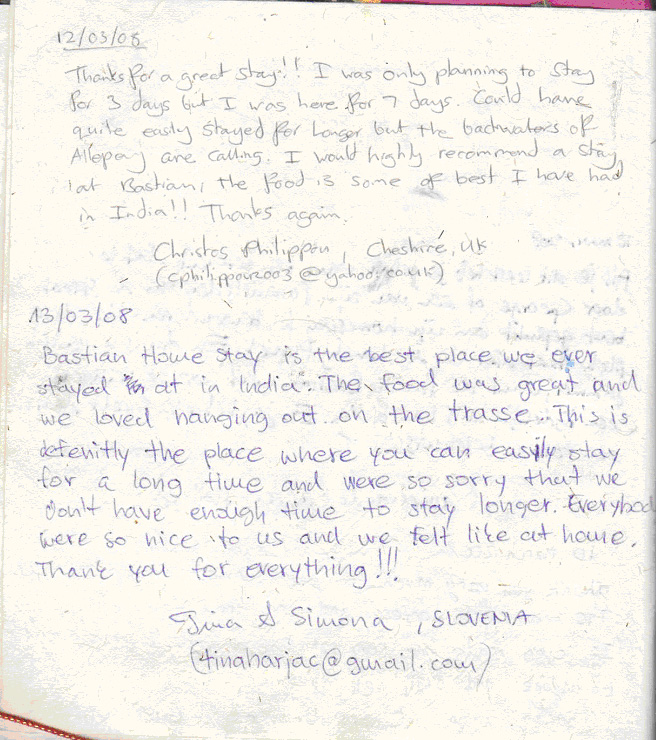 12/03/08
Thanks for a great stay!! I was only planning to stay
for 3 days but I was here for 7 days. Could have
quite easily stayed for longer but the backwaters of
Allepey are calling. I would highly recommend a stay
at Bastian, the food is some of best I have had
in India!! Thanks again.
Christos Philippou, Cheshire, UK
(cphilippou2003@yahoo.co.uk)
13/03/08
Bastian Home stay is the best place we ever
stayed at in India. The food was great and
we loved hanging out on the trasse. This is
defenitly the place where you can easily stay
for a long time and were so sorry that we
don't have enough time to stay longer. Everybod
were so nice to us and we felt like at home.
Thank you for everything!!!
Tina & Simona, SLOVENIA
(tinaharjac@gmail.com)